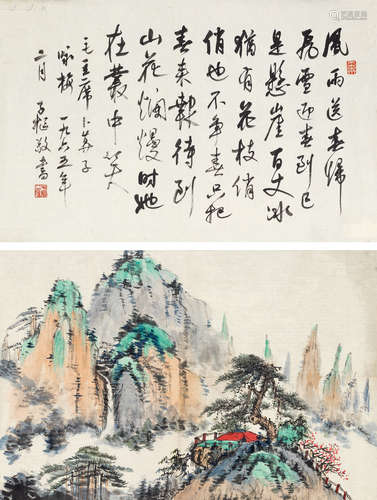 風雨送春歸
飛雪迎春到已
是懸崖百丈冰
猶有花枝俏
俏也不爭春只把
春來報待到
山花爛熳時她
在叢中笑
毛主席卜算子
咏梅 一九六五年
二月 敬書